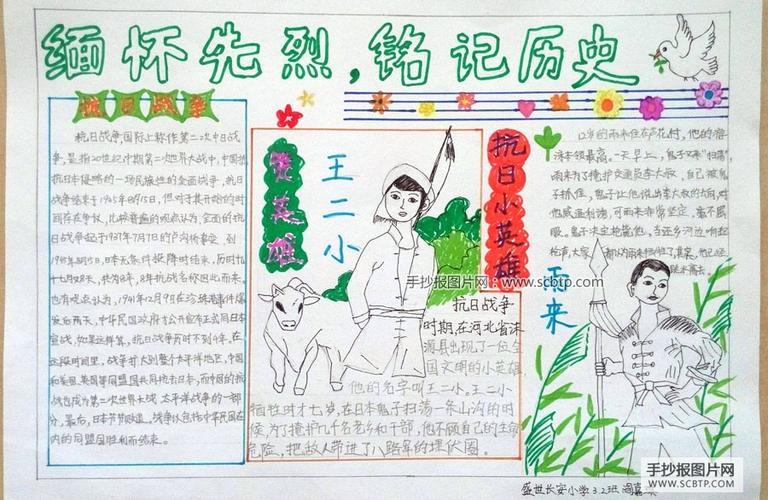 缅怀先烈,铭记历史
抗日战争
抗日战争,国际上称作第二次中日战
争,是指20世纪中期第二次世界大战中,中国抵
抗日本侵略的一场民族性的全面战争,抗日
战争结束于1945年8月15日,但对于其开始的时
间存在争议,比较普遍的观点认为,全面的抗
日战争起于1937年7月7日的卢沟桥事变,到
1945年8月15日,日本无条件投降时结束,历时九
十七天,共为8年,8年抗战名称因此而来。
也有观点认为,1941年12月9日在珍珠港事件爆
发后两天,中华民国政府才公开宣布正式向日本
宣战,如果这样算,抗日战争历时不到4年,在
这段时间里,战争扩大到整个太平洋地区,中国
和美国、英国等同盟国共同抗击日本,而中国的抗
战也成为第二次世界大战,太平洋战争的一部
分,最后,日本节节败退。战争以包括中华民国在
内的同盟国胜利而结束。
英雄
王二小
抗日战争
时期,在河北省涞
源县出现了一位全
国文明的小英雄
他的名字叫王二小。王二小
牺牲时才七岁,在日本鬼子扫荡一条山沟的时
候,为了掩护几千名老乡和干部,他不顾自己的生命
危险,把敌人带进了八路军的埋伏圈。
抗日小英雄
12岁的雨来住在芦花村,他的游
泳本领最高。一天早上,鬼子又来“扫荡”,
雨来为了掩护交通员李大叔,自己被鬼
子抓住,鬼子让他说出李大叔的去向,对
他威逼利诱,可雨来非常坚定,毫不屈
服。鬼子决定枪毙他。当还乡河边响起
枪声,大家都以为雨来牺牲了,其实,他已
雨来
手抄报图片网:www.scbtp.com
盛世长安小学3.2班
手抄报图片网
WWW.SCBTP.COM